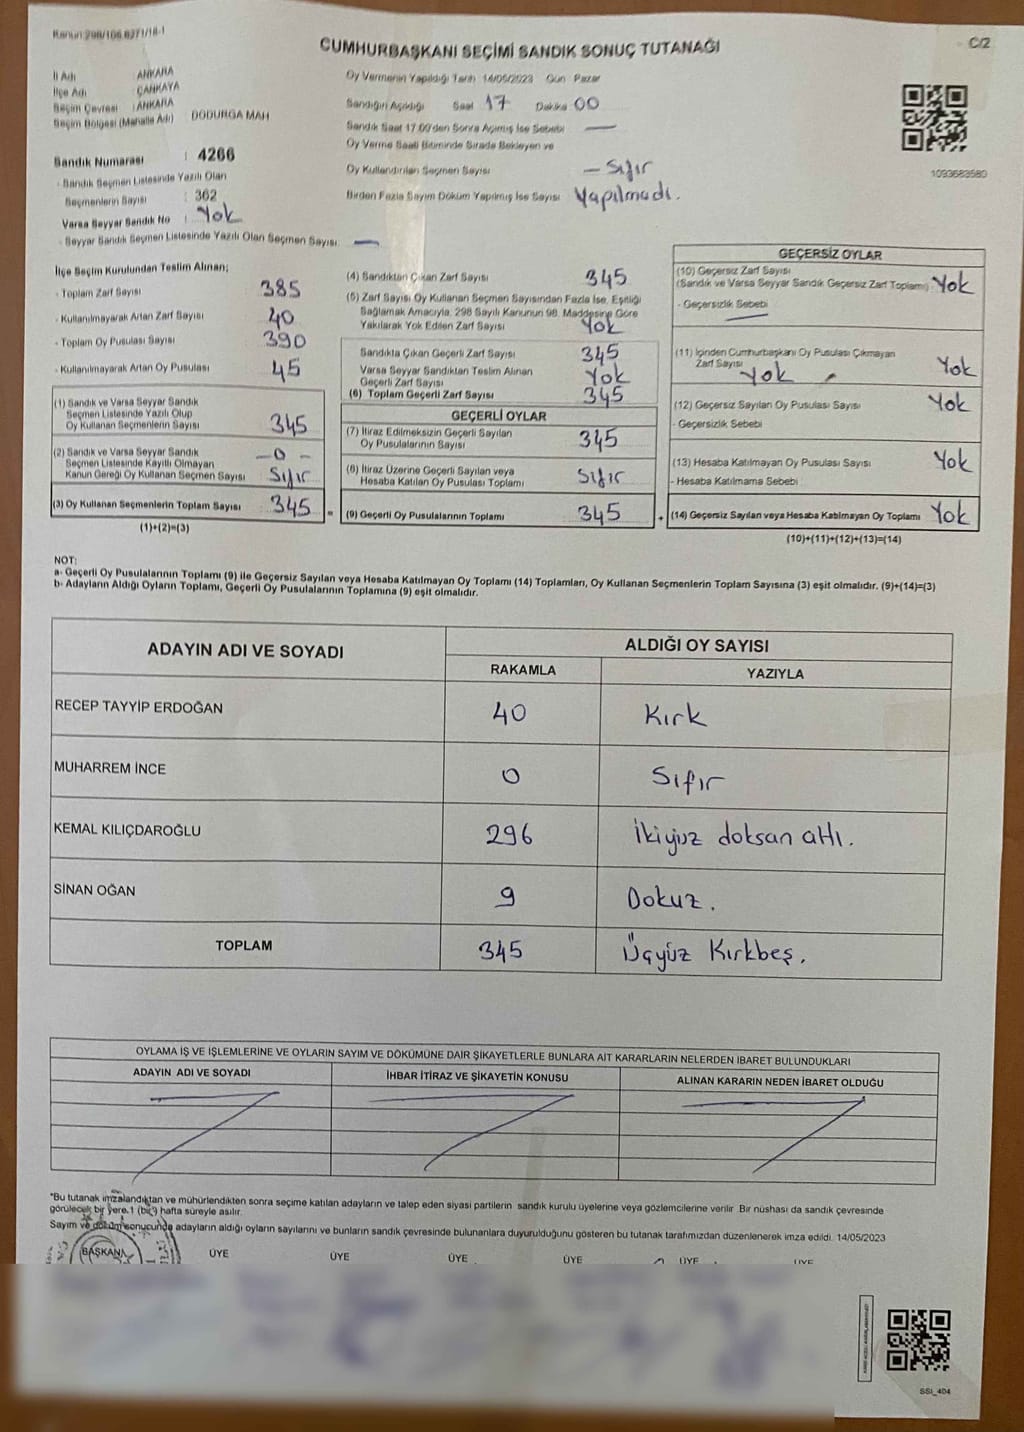 Kanun:298/106.6271/18-1
CUMHURBAŞKANI SEÇİMİ SANDIK SONUÇ TUTANAĞI
C/2
İl Adı : ANKARA
İlçe Adı : ÇANKAYA
Seçim Çevresi : ANKARA
Seçim Bölgesi (Mahalle Adı) DODURGA MAH
Sandık Numarası : 4266
- Sandık Seçmen Listesinde Yazılı Olan
Seçmenlerin Sayısı : 362
Varsa Seyyar Sandık No : Yok
- Seyyar Sandık Seçmen Listesinde Yazılı Olan Seçmen Sayısı: —
Oy Vermenin Yapıldığı Tarih 14/05/2023 Gün Pazar
Sandığın Açıldığı Saat 17 Dakika 00
Sandık Saat 17:00'den Sonra Açılmış İse Sebebi —
Oy Verme Saati Bitiminde Sırada Bekleyen ve
Oy Kullandırılan Seçmen Sayısı — Sıfır
Birden Fazla Sayım Döküm Yapılmış İse Sayısı Yapılmadı.
1093683580
İlçe Seçim Kurulundan Teslim Alınan;
- Toplam Zarf Sayısı 385
- Kullanılmayarak Artan Zarf Sayısı 40
- Toplam Oy Pusulası Sayısı 390
- Kullanılmayarak Artan Oy Pusulası 45
(1) Sandık ve Varsa Seyyar Sandık
Seçmen Listesinde Yazılı Olup
Oy Kullanan Seçmenlerin Sayısı 345
(2) Sandık ve Varsa Seyyar Sandık
Seçmen Listesinde Kayıtlı Olmayan
Kanun Gereği Oy Kullanan Seçmen Sayısı —0— Sıfır
(3) Oy Kullanan Seçmenlerin Toplam Sayısı 345 =
(1)+(2)=(3)
(4) Sandıktan Çıkan Zarf Sayısı 345
(5) Zarf Sayısı Oy Kullanan Seçmen Sayısından Fazla İse, Eşitliği
Sağlamak Amacıyla, 298 Sayılı Kanunun 98. Maddesine Göre
Yakılarak Yok Edilen Zarf Sayısı Yok
Sandıkta Çıkan Geçerli Zarf Sayısı 345
Varsa Seyyar Sandıktan Teslim Alınan
Geçerli Zarf Sayısı Yok
(6) Toplam Geçerli Zarf Sayısı 345
GEÇERLİ OYLAR
(7) İtiraz Edilmeksizin Geçerli Sayılan
Oy Pusulalarının Sayısı 345
(8) İtiraz Üzerine Geçerli Sayılan veya
Hesaba Katılan Oy Pusulası Toplamı Sıfır
(9) Geçerli Oy Pusulalarının Toplamı 345 +
GEÇERSİZ OYLAR
(10) Geçersiz Zarf Sayısı
(Sandık ve Varsa Seyyar Sandık Geçersiz Zarf Toplamı) Yok
- Geçersizlik Sebebi —
(11) İçinden Cumhurbaşkanı Oy Pusulası Çıkmayan
Zarf Sayısı Yok Yok
(12) Geçersiz Sayılan Oy Pusulası Sayısı Yok
- Geçersizlik Sebebi
(13) Hesaba Katılmayan Oy Pusulası Sayısı Yok
- Hesaba Katılmama Sebebi
(14) Geçersiz Sayılan veya Hesaba Katılmayan Oy Toplamı Yok
(10)+(11)+(12)+(13)=(14)
NOT:
a- Geçerli Oy Pusulalarının Toplamı (9) ile Geçersiz Sayılan veya Hesaba Katılmayan Oy Toplamı (14) Toplamları, Oy Kullanan Seçmenlerin Toplam Sayısına (3) eşit olmalıdır. (9)+(14)=(3)
b- Adayların Aldığı Oyların Toplamı, Geçerli Oy Pusulalarının Toplamına (9) eşit olmalıdır.
ADAYIN ADI VE SOYADI
ALDIĞI OY SAYISI
RAKAMLA YAZIYLA
RECEP TAYYİP ERDOĞAN 40 Kırk
MUHARREM İNCE 0 Sıfır
KEMAL KILIÇDAROĞLU 296 İkiyüz doksan altı.
SİNAN OĞAN 9 Dokuz.
TOPLAM 345 Üçyüz Kırkbeş.
OYLAMA İŞ VE İŞLEMLERİNE VE OYLARIN SAYIM VE DÖKÜMÜNE DAİR ŞİKAYETLERLE BUNLARA AİT KARARLARIN NELERDEN İBARET BULUNDUKLARI
ADAYIN ADI VE SOYADI İHBAR İTİRAZ VE ŞİKAYETİN KONUSU ALINAN KARARIN NEDEN İBARET OLDUĞU
*Bu tutanak imzalandıktan ve mühürlendikten sonra seçime katılan adayların ve talep eden siyasi partilerin sandık kurulu üyelerine veya gözlemcilerine verilir. Bir nüshası da sandık çevresinde
görülecek bir yere 1 (bir) hafta süreyle asılır.
Sayım ve döküm sonucunda adayların aldığı oyların sayılarını ve bunların sandık çevresinde bulunanlara duyurulduğunu gösteren bu tutanak tarafımızdan düzenlenerek imza edildi. 14/05/2023
BAŞKAN ÜYE ÜYE ÜYE ÜYE ÜYE ÜYE
SSI_404